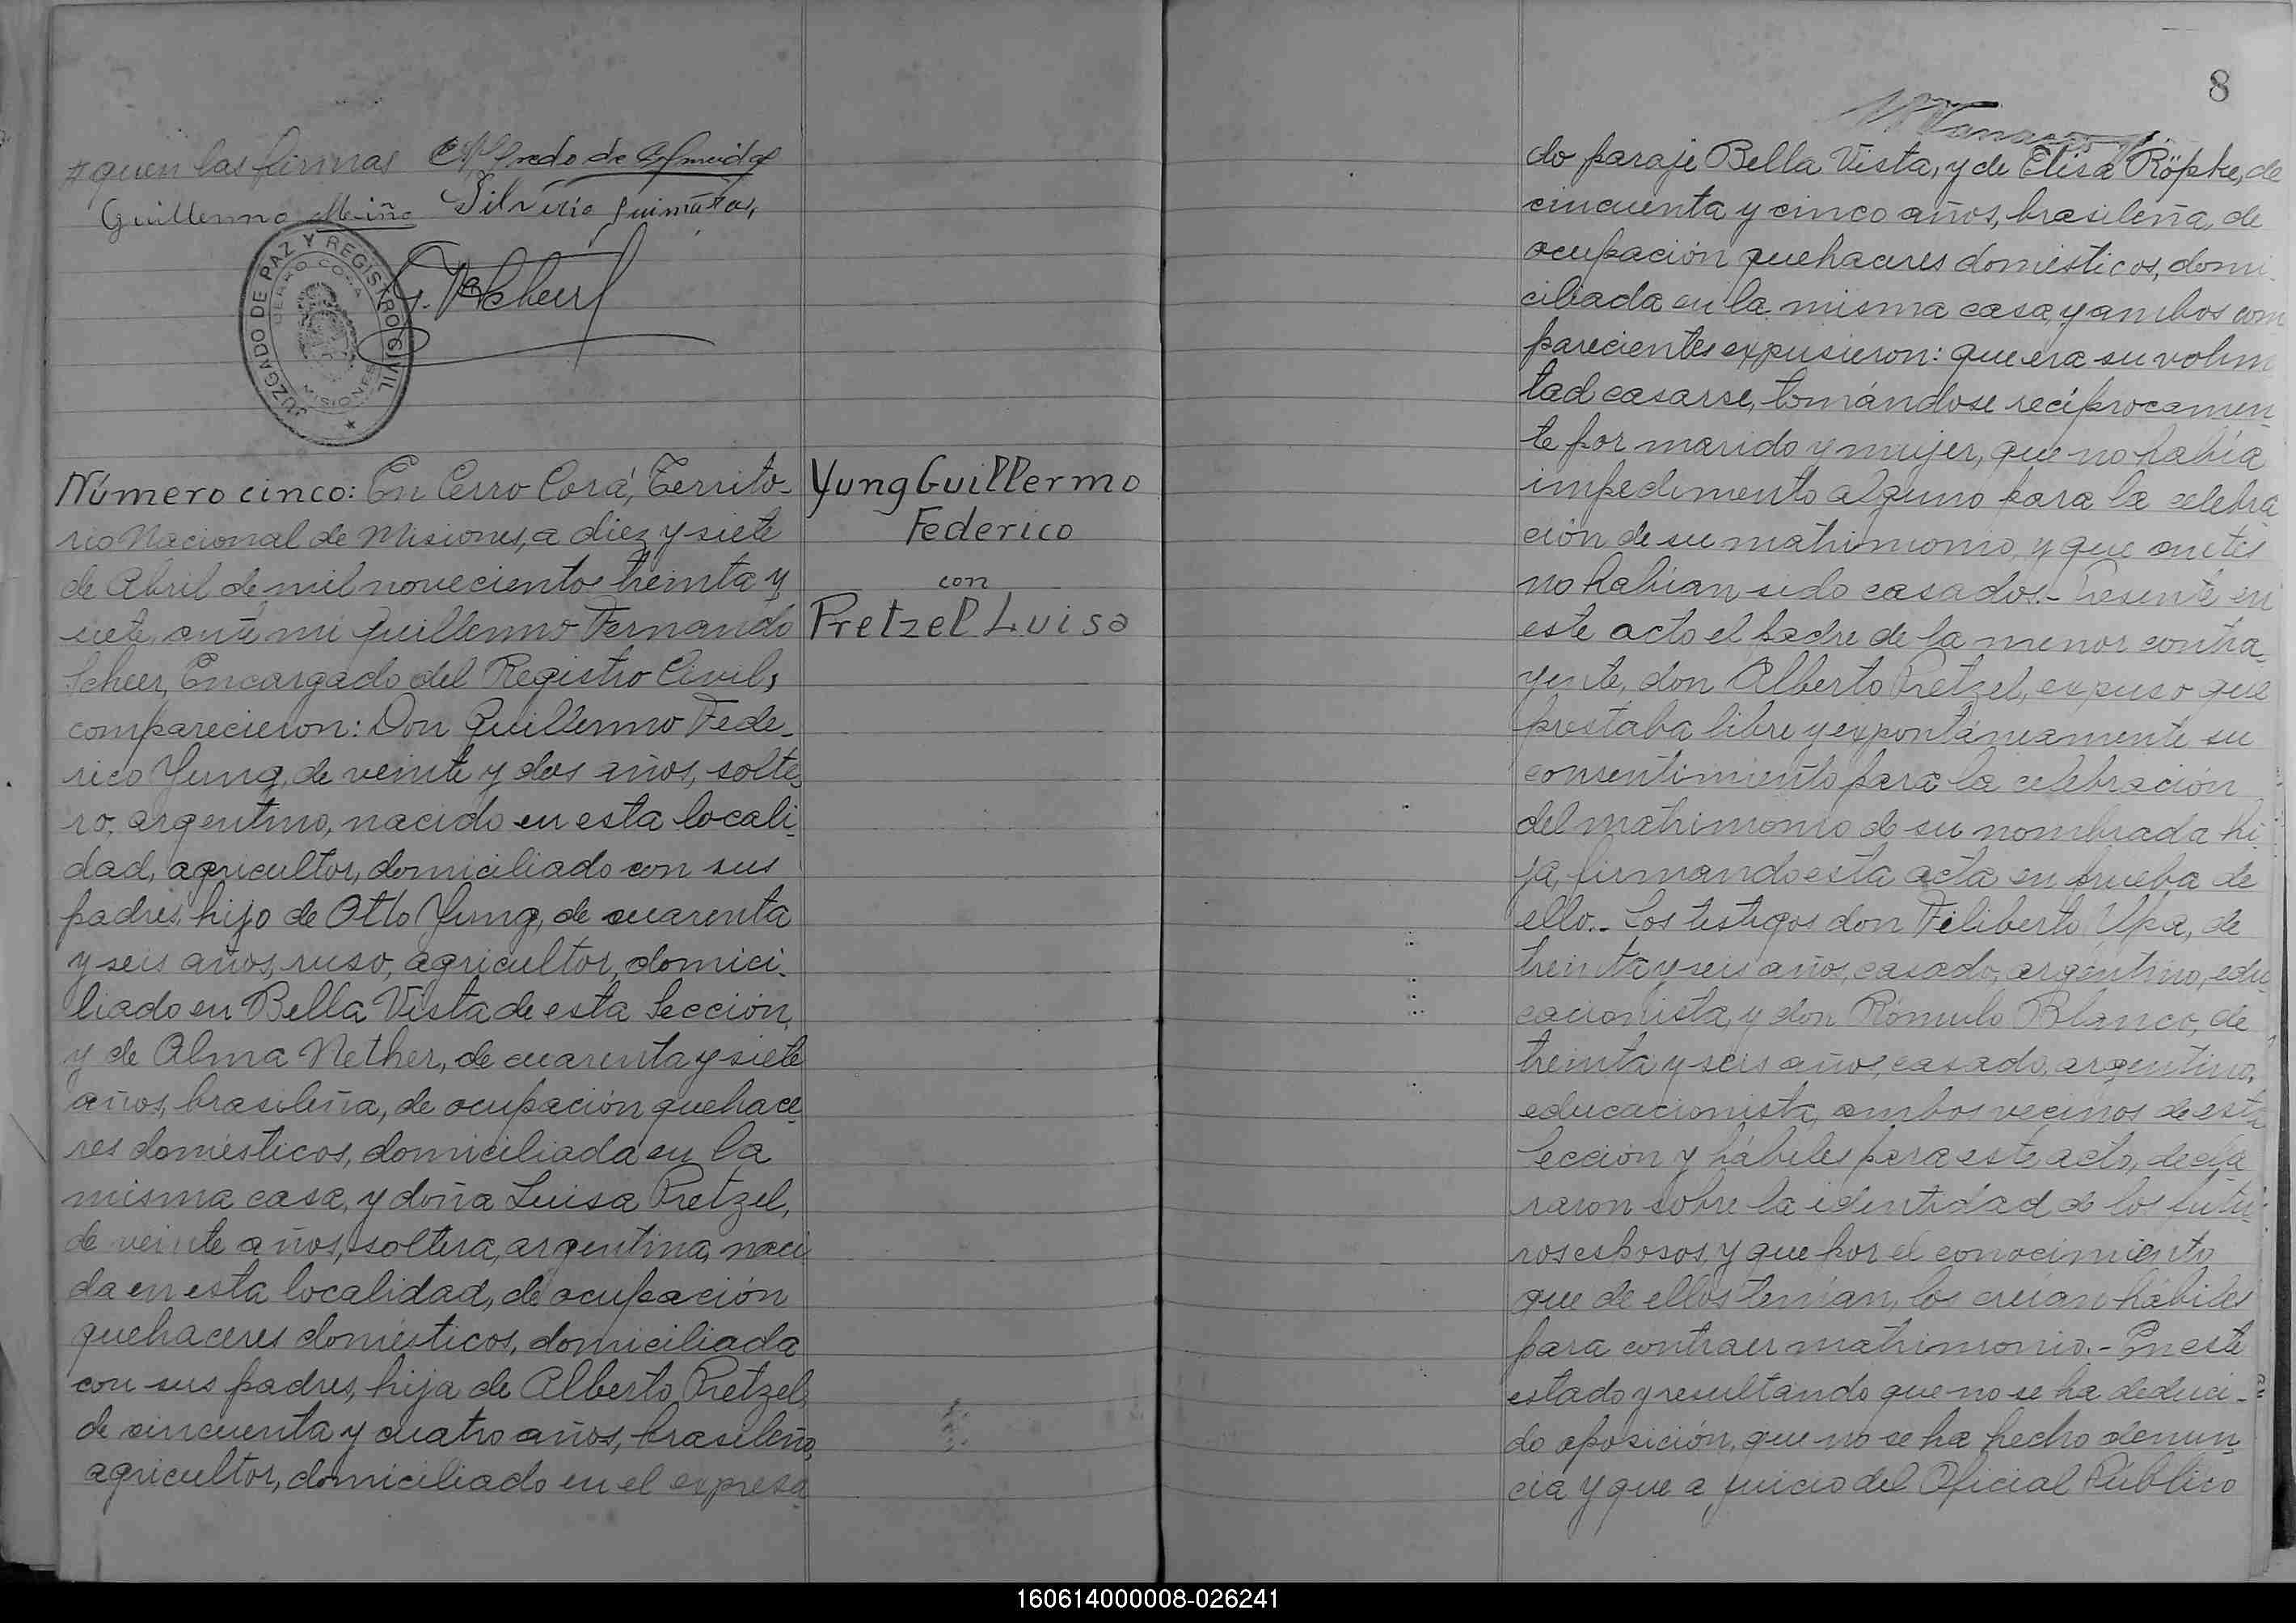 siguen las firmas Alfredo de Almeida
Guillermo Miño Silvirio Guimarães
G. F. Scheer
JUZGADO DE PAZ Y REGISTRO CIVIL
CERRO CORA
MISIONES
Número cinco: En Cerro Corá, Territo-
rio Nacional de Misiones, a diez y siete
de Abril de mil novecientos treinta y
siete, ante mi Guillermo Fernando
Scheer, Encargado del Registro Civil,
comparecieron: Don Guillermo Fede-
rico Yung, de veinte y dos años, solte-
ro, argentino, nacido en esta locali-
dad, agricultor, domiciliado con sus
padres, hijo de Otto Yung, de cuarenta
y seis años, ruso, agricultor, domici-
liado en Bella Vista de esta Sección,
y de Alma Nether, de cuarenta y siete
años, brasileña, de ocupación quehace-
res domésticos, domiciliada en la
misma casa, y doña Luisa Pretzel,
de veinte años, soltera, argentina, naci-
da en esta localidad, de ocupación
quehaceres domésticos, domiciliada
con sus padres, hija de Alberto Pretzel,
de cincuenta y cuatro años, brasileño,
agricultor, domiciliado en el expresa-
Yung Guillermo
Federico
con
Pretzel Luisa
8
do paraje Bella Vista, y de Elisa Röpke, de
cincuenta y cinco años, brasileña, de
ocupación quehaceres domésticos, domi-
ciliada en la misma casa, y ambos com
parecientes expusieron: que era su volun
tad casarse, tomándose recíprocamen-
te por marido y mujer, que no había
impedimento alguno para la celebra
ción de su matrimonio, y que antes
no habían sido casados.- Presente en
este acto el padre de la menor contra-
yente, don Alberto Pretzel, expuso que
prestaba libre y expontáneamente su
consentimiento para la celebración
del matrimonio de su nombrada hi-
ja, firmando esta acta en prueba de
ello.- Los testigos don Filiberto Upa, de
treinta y seis años, casado, argentino, edu
cacionista, y don Rómulo Blanco, de
treinta y seis años, casado, argentino,
educacionista, ambos vecinos de esta
Sección y hábiles para este acto, decla
raron sobre la identidad de los futu-
ros esposos, y que por el conocimiento
que de ellos tenían, los creían hábiles
para contraer matrimonio.- En este
estado y resultando que no se ha deduci-
do oposición, que no se ha hecho denun
cia y que a juicio del Oficial Público
160614000008-026241